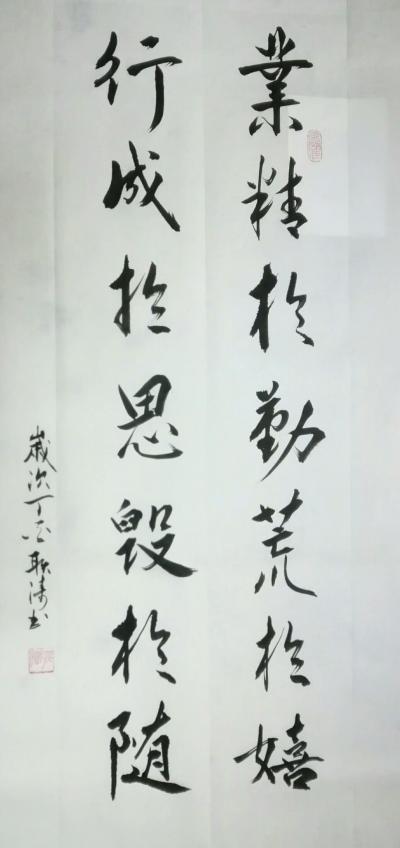 業精於勤荒於嬉
行成於思毀於随
歲次丁酉耿涛书